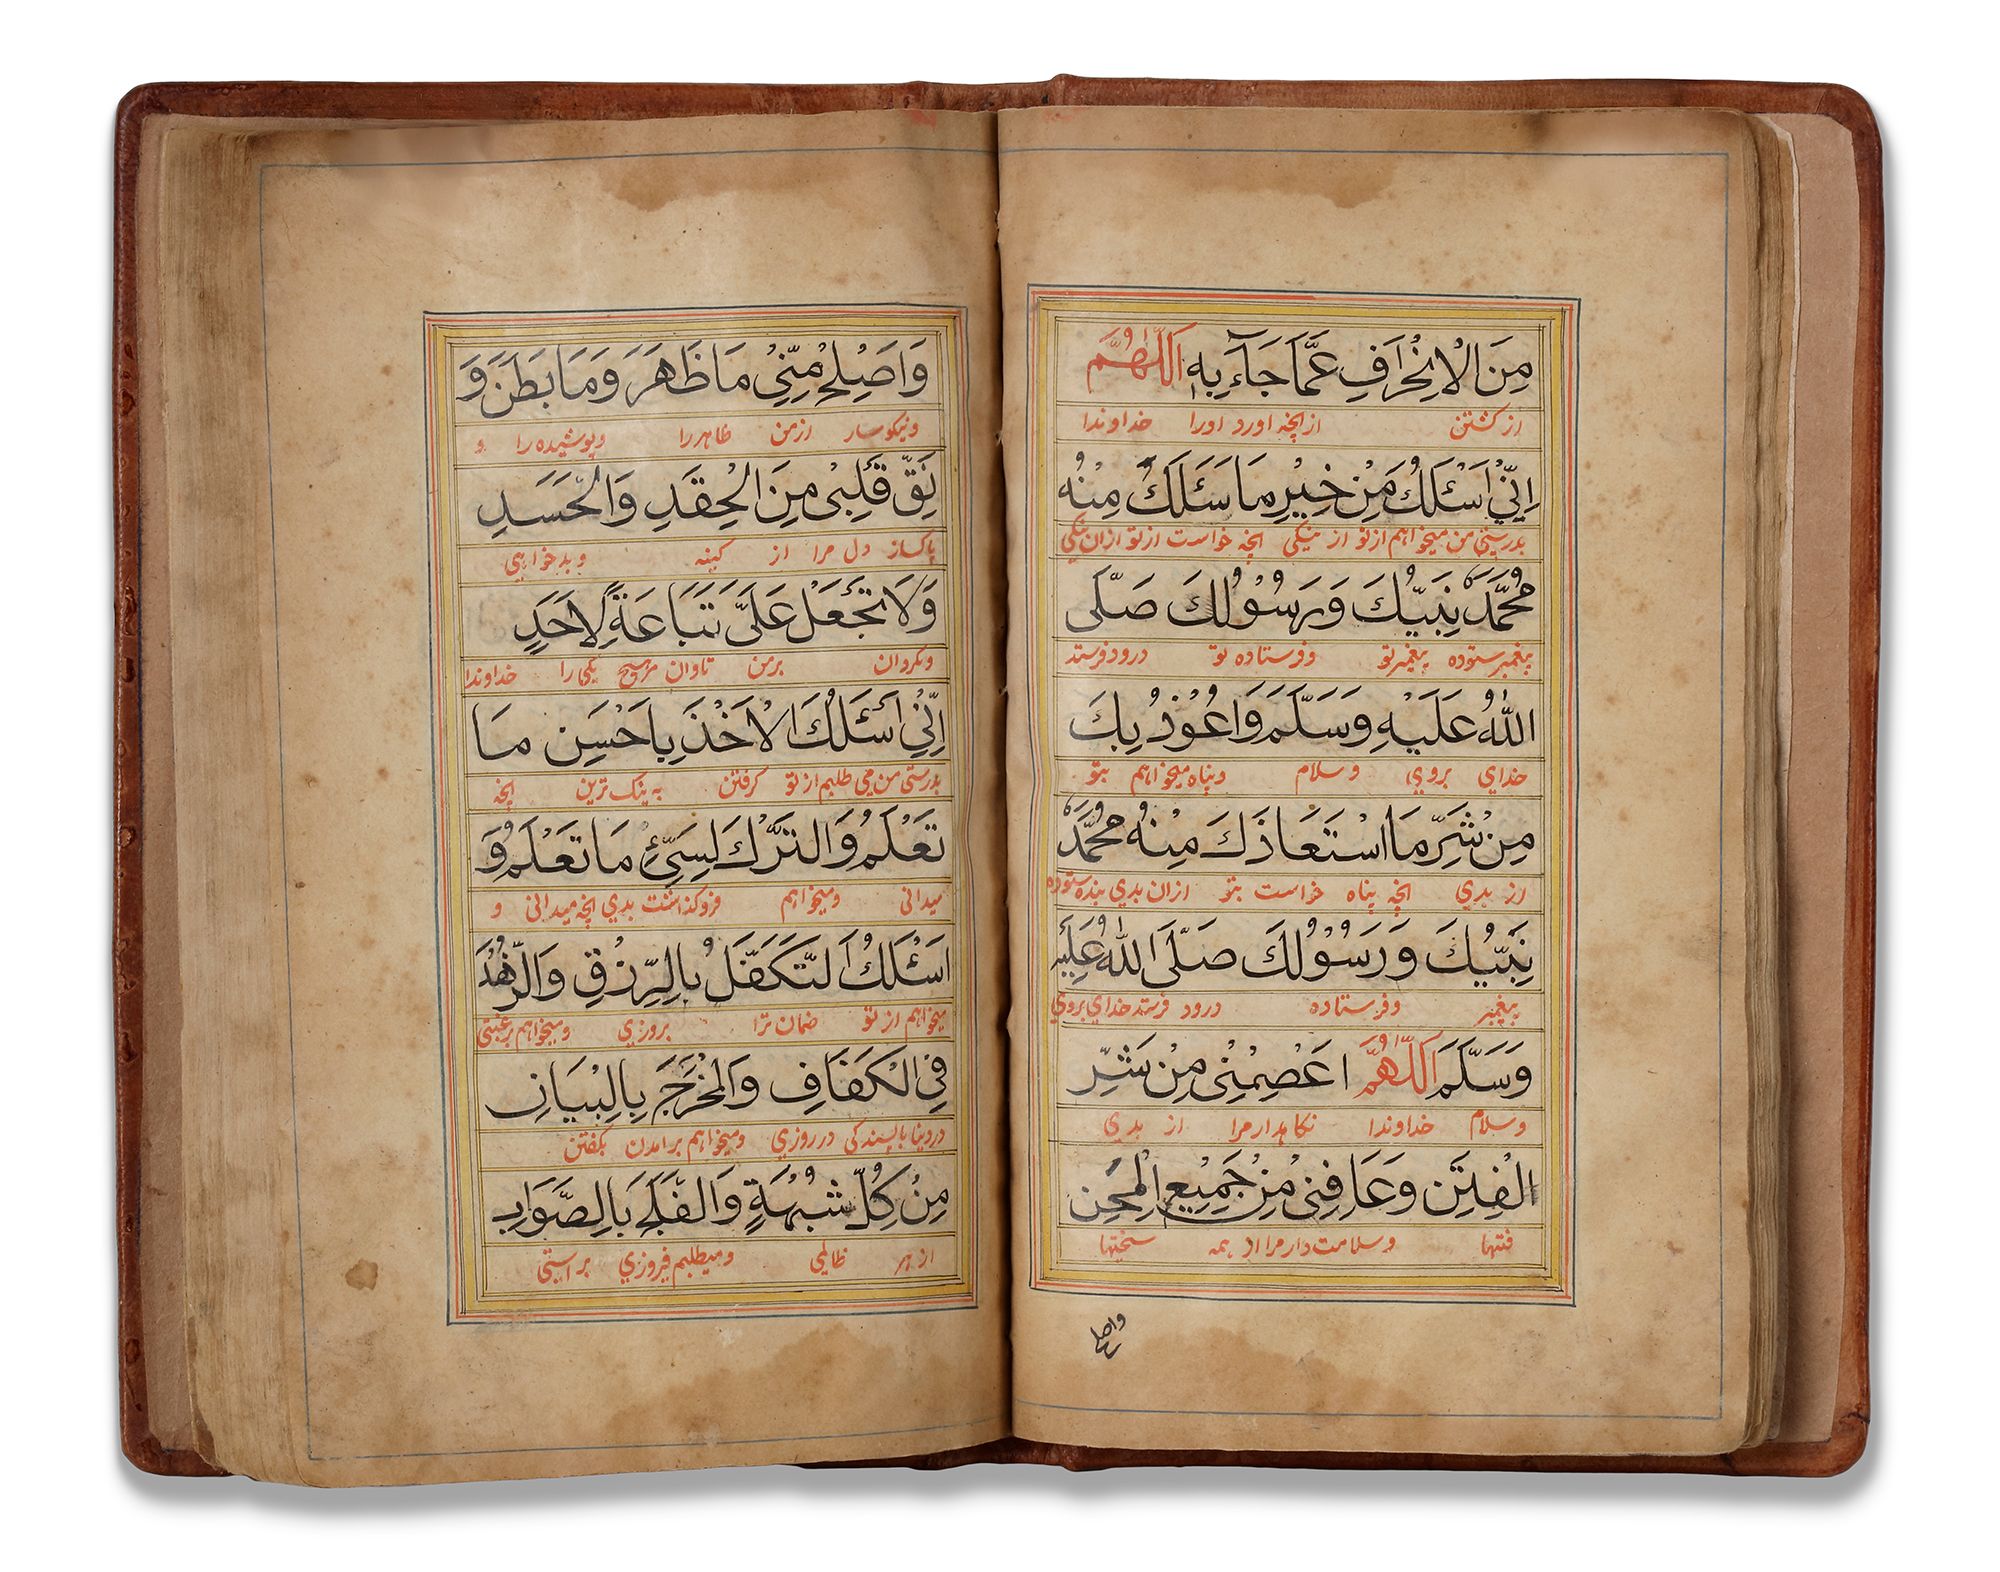 مِنَ الْاِنْحِرَافِ عَمَّا جَآءَ بِهٖ اَللّٰهُمَّ
از کشتن از آنچه اورد اورا خداوندا
اِنِّیْ اَسْئَلُكَ مِنْ خَیْرِ مَا سَئَلَكَ مِنْهُ
بدرستی من میخواهم از تو از نیکی آنچه خواست از تو از آن نیکی
مُحَمَّدٌ نَبِیُّكَ وَرَسُوْلُكَ صَلَّی
پیغمبر ستوده پیغمبر تو وفرستاده تو درود فرستد
اللّٰهُ عَلَیْهِ وَسَلَّمَ وَاَعُوْذُ بِكَ
خدای بروی وسلام وپناه میخواهم بتو
مِنْ شَرِّ مَا اسْتَعَاذَكَ مِنْهُ مُحَمَّدٌ
از بدی آنچه پناه خواست بتو از آن بدی بنده ستوده
نَبِیُّكَ وَرَسُوْلُكَ صَلَّی اللّٰهُ عَلَیْهِ
پیغمبر وفرستاده درود فرستد خدای بروی
وَسَلَّمَ اَللّٰهُمَّ اعْصِمْنِیْ مِنْ شَرِّ
وسلام خداوندا نگاهدار مرا از بدی
الْفِتَنِ وَعَافِنِیْ مِنْ جَمِیْعِ الْمِحَنِ
فتنها وسلامت دار مرا از همه سختیها
واصلح
وَاَصْلِحْ مِنِّیْ مَا ظَهَرَ وَمَا بَطَنَ وَ
ونیکو ساز از من ظاهر را وپوشیده را و
نَقِّ قَلْبِیْ مِنَ الْحِقْدِ وَالْحَسَدِ
پاکساز دل مرا از کینه وبدخواهی
وَلَا تَجْعَلْ عَلَیَّ تَبَاعَةً لِاَحَدٍ
ومگردان برمن تاوان مر هیچ یکی را خداوندا
اِنِّیْ اَسْئَلُكَ الْاَخْذَ بِاَحْسَنِ مَا
بدرستی من می طلبم از تو گرفتن به نیک ترین آنچه
تَعْلَمُ وَالتَّرْكَ لِسَیِّئِ مَا تَعْلَمُ وَ
میدانی ومیخواهم فروگذاشت بدی آنچه میدانی و
اَسْئَلُكَ التَّكَفُّلَ بِالرِّزْقِ وَالزُّهْدَ
میخواهم از تو ضمان ترا بروزی ومیخواهم بی رغبتی
فِی الْكَفَافِ وَالْمَخْرَجَ بِالْبَیَانِ
در دینا در روزی ومیخواهم برآمدن بگفتن
مِنْ كُلِّ شُبْهَةٍ وَالْفَلَجَ بِالصَّوَابِ
از هر ومیطلبم فیروزی براستی